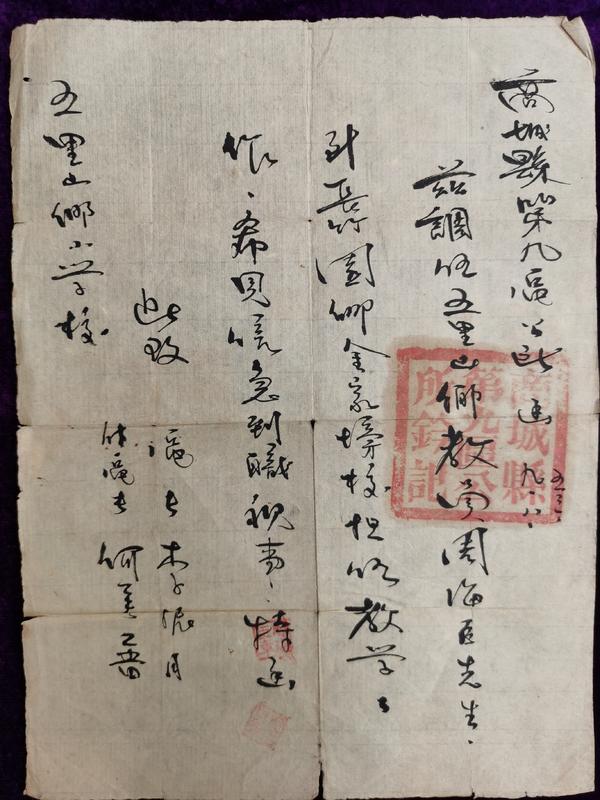 商城縣第九區公所函 五三、九、八、
茲調你五里山鄉教員周海臣先生、
到長竹園鄉金家塝校担任教學工
作、希見信急到職視事、特函
此致
五里山鄉小学校
區長 李
付區長 何美番
商城縣第九區公所鈐記